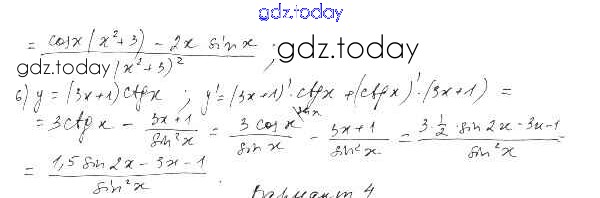 gdz.today
= cosx(x²+3) - 2x sinx / (x²+3)² ;
gdz.today
gdz.today
б) y = (3x+1)ctgx ; y' = (3x+1)'·ctgx + (ctgx)'·(3x+1) =
= 3ctgx - 3x+1 / sin²x = 3cosx / sinx - 3x+1 / sin²x = 3·½·sin2x-3x-1 / sin²x
= 1,5sin2x - 3x - 1 / sin²x .
Вариант 4